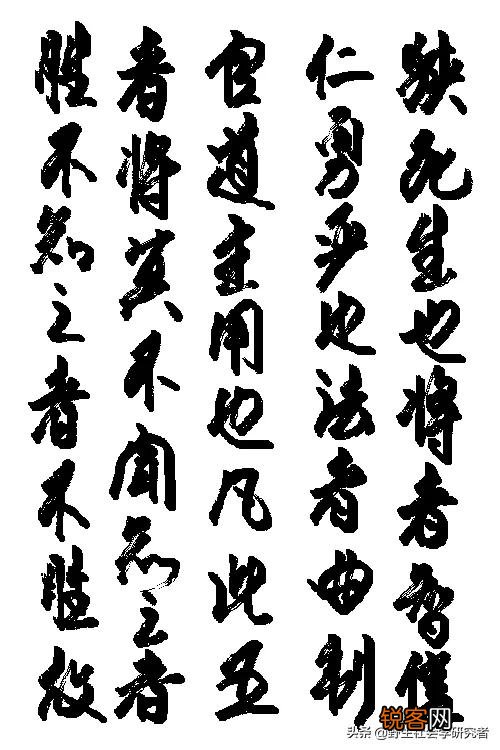 狭死生也将者智信
仁勇严也法者曲制
官道主用也凡此五
者将莫不闻知之者
胜不知之者不胜故
锐客网
头条 @野生社会学研究者